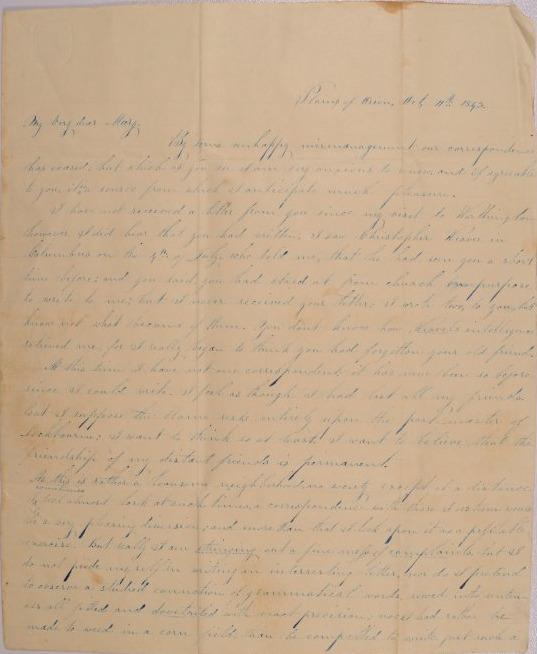 Plains of Huron, Oct 11th 1842.
My Very dear Mary,
By some unhappy mismanagement our correspondence
has ceased; but which if you so I am very anxious to renew and if agreeable
to you, it is a source from which I anticipate much pleasure.
I have not received a letter from you since my visit to Worthington
however I did hear that you had written, I saw Christopher in
Columbus on the 4th of July, who told me, that he had seen you a short
time before; and you said you had staid at from church on purpose
to write to me; but I never received your letter; I wrote two, to you, but
know not what became of them. You don't know how intelligence
relieved me, for I really began to think you had forgotten your old friend.
At this time I have not one correspondent, it has never been so before
since I could write. I feel as though I had lost all my friends
but I suppose the blame rests entirely upon the post-master of
Lockbourn; I want to think so at least. I want to believe that the
friendship of my distant friends is permanent.
As this is rather a lonesome neighborhood, no society except at a distance
sometimes
I feel almost at such times a correspondence with those I esteem would
be a very pleasing diversion; and more than that I look upon it as a profitable
exercise. But really I am stringing out a fine mess of complaints but I
do not pride myself in writing an interesting letter, nor do I pretend
to observe a studied connection of grammatical words, sewed into senten-
ces all fitted and dovetailed with exact precision; no, I had rather be
made to weed in a corn field than be compelled to write just such a